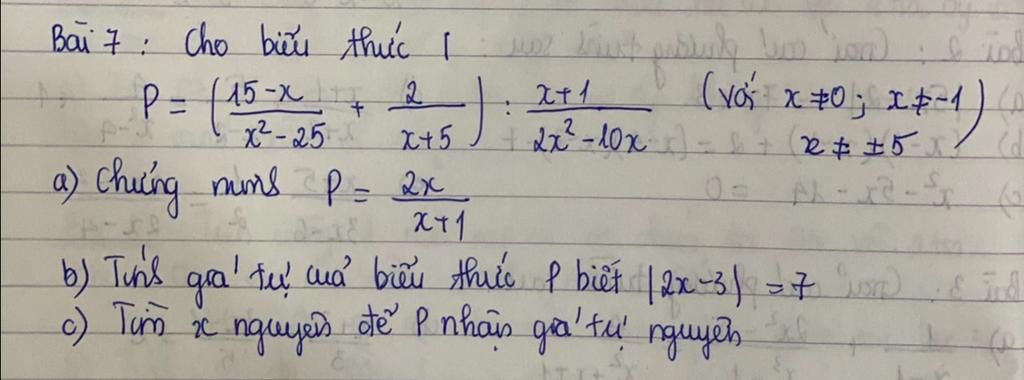 Bài 7 : Cho biểu thức :
P = ( (15-x)/(x² - 25) + 2/(x+5) ) : (x+1)/(2x² - 10x) (với x ≠ 0 ; x ≠ -1 x ≠ ±5)
a) Chứng minh P = 2x/(x+1)
b) Tính giá trị của biểu thức P biết |2x-3| = 7
c) Tìm x nguyên để P nhận giá trị nguyên